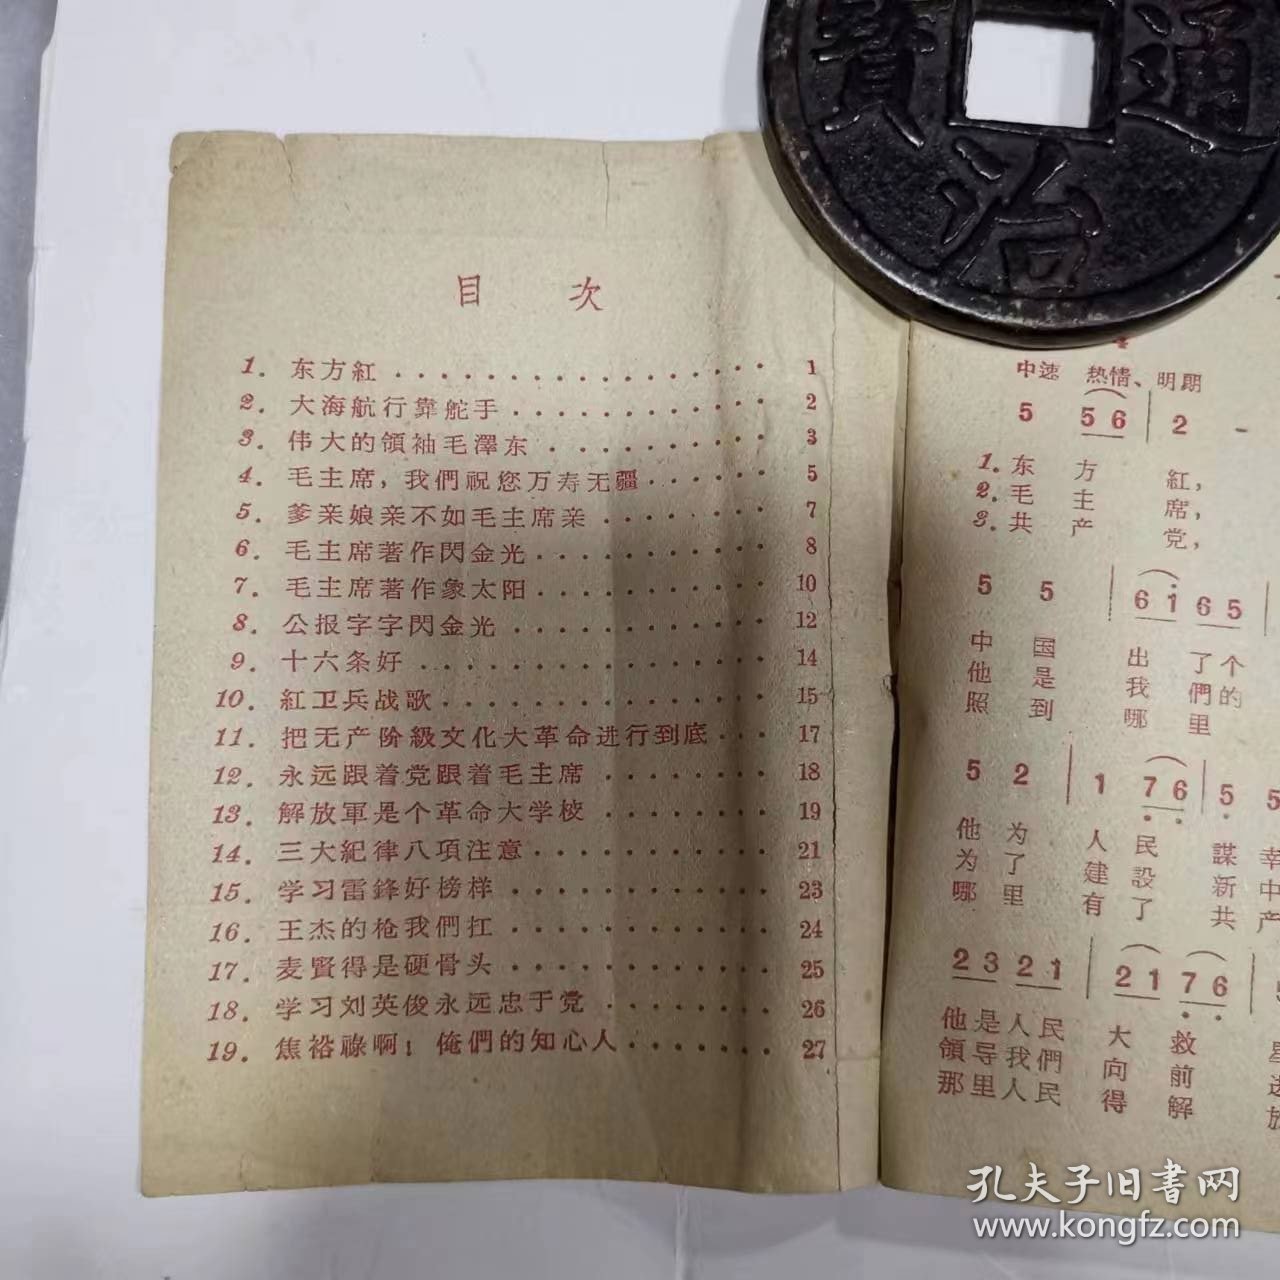 寶 通
治
目 次
1. 东方紅 1
2. 大海航行靠舵手 2
3. 伟大的領袖毛澤东 3
4. 毛主席，我們祝您万寿无疆 5
5. 爹亲娘亲不如毛主席亲 7
6. 毛主席著作閃金光 8
7. 毛主席著作象太阳 10
8. 公报字字閃金光 12
9. 十六条好 14
10. 紅卫兵战歌 15
11. 把无产阶級文化大革命进行到底 17
12. 永远跟着党跟着毛主席 18
13. 解放軍是个革命大学校 19
14. 三大紀律八項注意 21
15. 学习雷鋒好榜样 23
16. 王杰的枪我們扛 24
17. 麦賢得是硬骨头 25
18. 学习刘英俊永远忠于党 26
19. 焦裕祿啊！俺們的知心人 27
4
中速 热情、明朗
5 5 6 2 -
1. 东 方 紅，
2. 毛 主 席，
3. 共 产 党，
5 5 6 i 6 5
中 国 出 了 个
他 是 我 們 的
照 到 哪 里
5 2 1 7 6 5 5
他 为 人 民 謀 幸
为 了 建 設 新 中
哪 里 有 了 共 产
2 3 2 1 2 1 7 6
他 是 人 民 大 救
領 导 我 們 向 前
那 里 人 民 得 解
孔夫子旧書网
www.kongfz.com